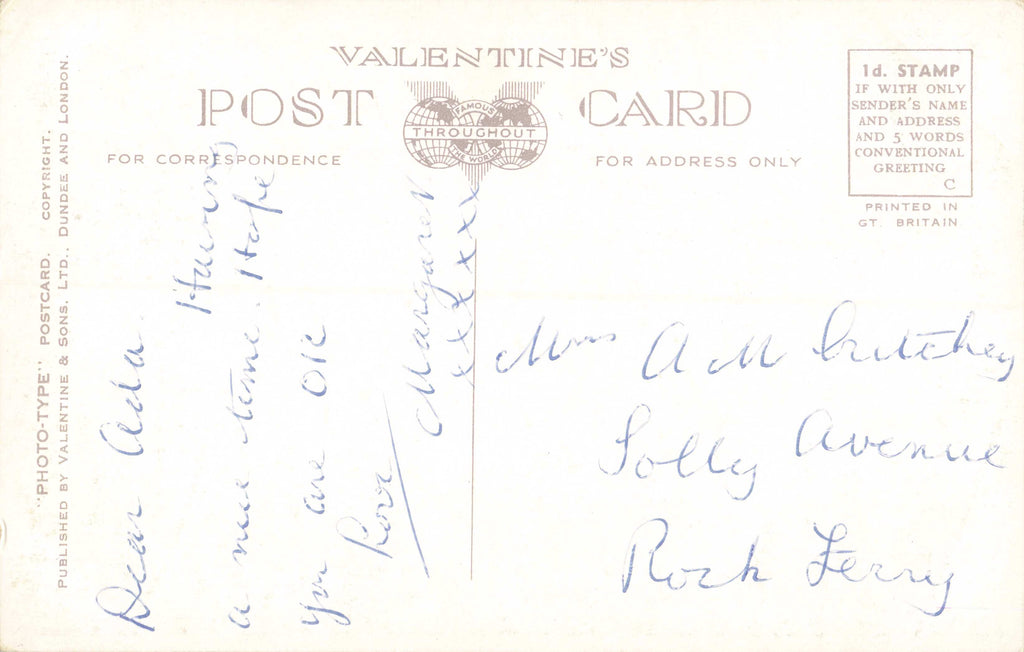 VALENTINE'S
POST CARD
FAMOUS
THROUGHOUT
THE WORLD
FOR CORRESPONDENCE
FOR ADDRESS ONLY
1d. STAMP
IF WITH ONLY
SENDER'S NAME
AND ADDRESS
AND 5 WORDS
CONVENTIONAL
GREETING
C
PRINTED IN
GT. BRITAIN
"PHOTO-TYPE" POSTCARD. COPYRIGHT.
PUBLISHED BY VALENTINE & SONS, LTD., DUNDEE AND LONDON.
Dear Ada.
Having
a nice time. Hope
you are OK
Love
Margaret
xxxxxx
Mrs A M Critchey
Solly Avenue
Rock Ferry